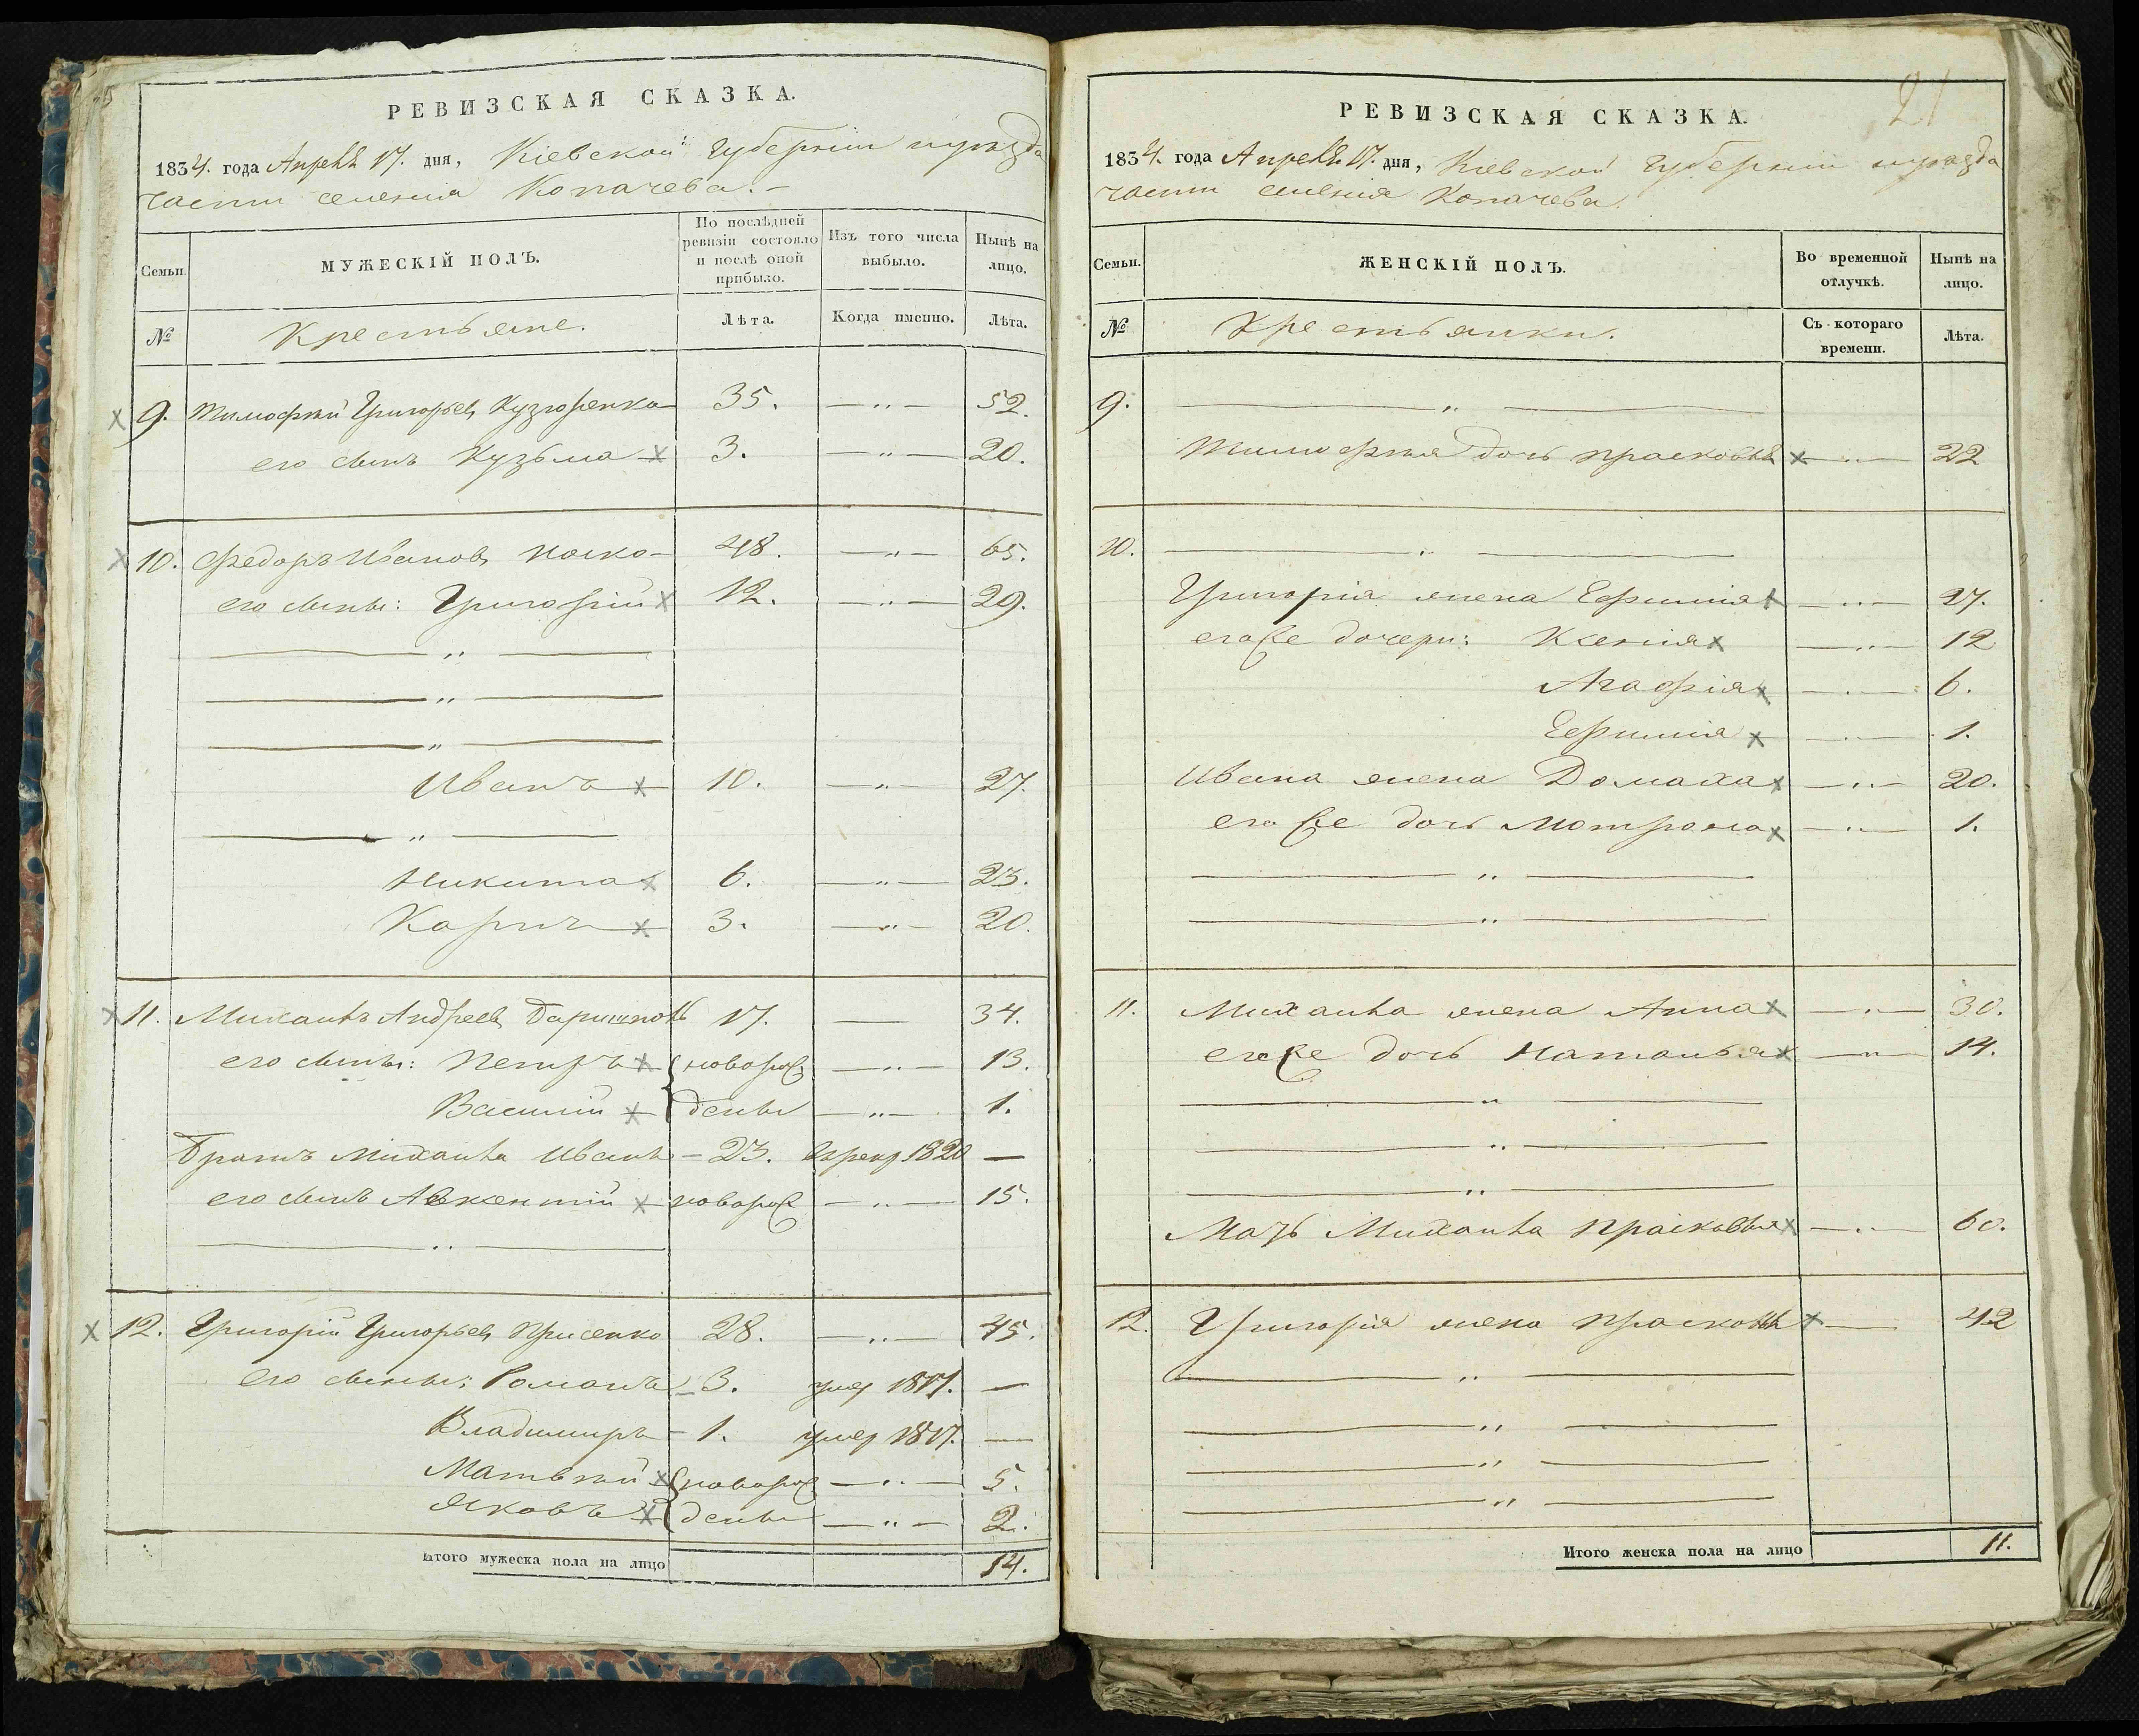 РЕВИЗСКАЯ СКАЗКА.
1834. года Апреля 17. дня, Кіевской Губерніи и уезда
части селенія Копачева.
Семьи.
МУЖЕСКІЙ ПОЛЪ.
По послѣдней ревизіи состояло и послѣ оной прибыло.
Изъ того числа выбыло.
Нынѣ на лицо.
№
Крестьяне.
Лѣта.
Когда именно.
Лѣта.
9. Тимофей Григорьев 35. —„— 52.
его сынъ Кузьма 3. —„— 20.
10. Федоръ Иванов Носко 48. —„— 65.
его сыны: Григорій 12. —„— 29.
—„—
—„—
—„—
Иванъ 10. —„— 27.
—„—
Никита 6. —„— 23.
Карпъ 3. —„— 20.
11. Михаила Андреев 17. — 34.
его сыны: Петръ новорож —„— 13.
Василій дены —„— 1.
Братъ Михаила Иванъ — 23. 1820 —
его сынъ Авксентій новорож —„— 15.
—„—
12. Григорій Григорьев Присенко 28. —„— 45.
его сыны: Романъ 3. умер —
Владимиръ 1. умер 1817. —
Матвей новорож —„— 5.
Яковъ дены —„— 2.
Итого мужеска пола на лицо 14.
21
РЕВИЗСКАЯ СКАЗКА.
1834. года Апреля 17. дня, Кіевской Губерніи и уезда
части селенія Копачева.
Семьи.
ЖЕНСКІЙ ПОЛЪ.
Во временной отлучкѣ.
Нынѣ на лицо.
№
Крестьянки.
Съ котораго времени.
Лѣта.
9. —„—
Тимофея дочь Прасковья —„— 22
10. —„—
Григорія жена Ефимія —„— 27.
его же дочери: Ксенія —„— 12
Агафія —„— 6.
Ефимія —„— 1.
Ивана жена Домаха —„— 20.
его же дочь Мотрона —„— 1.
—„—
—„—
11. Михаила жена Анна —„— 30.
его же дочь Наталья —„— 14.
—„—
—„—
—„—
Мать Михаила Прасковья —„— 60.
12. Григорія жена Прасковья — 42
—„—
—„—
—„—
—„—
Итого женска пола на лицо 11.